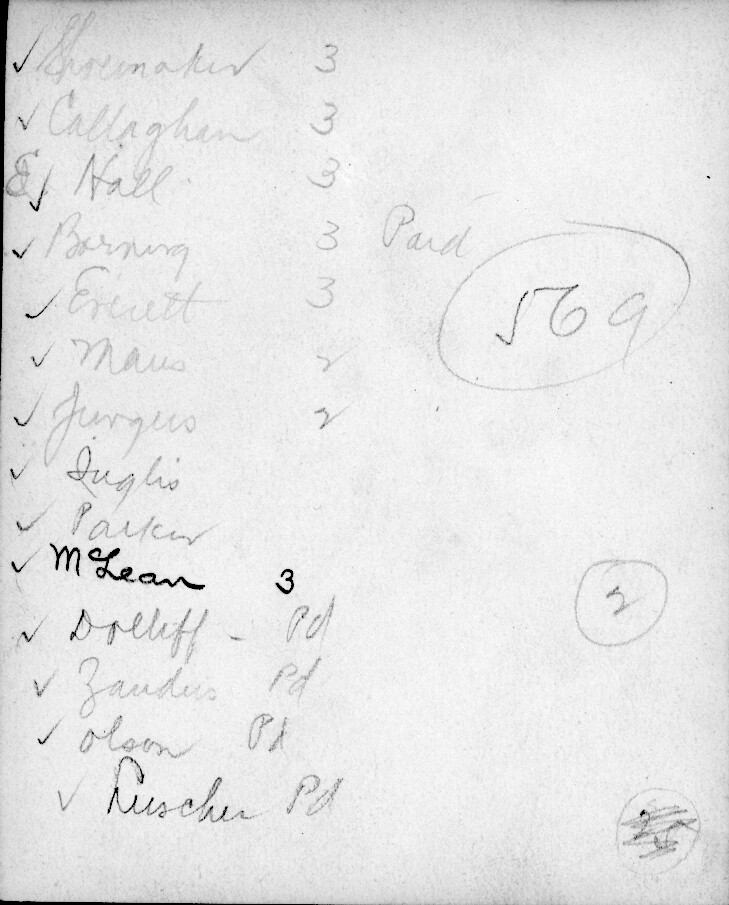 ✓ Shoemaker 3
✓ Callaghan 3
✓ Hall 3
✓ Borning 3 Paid
✓ Everett 3
569
✓ Maus 2
✓ Jurgens 2
✓ Inglis
✓ Parker
✓ McLean 3
2
✓ Dolliff - Pd
✓ Zanders Pd
✓ Olson Pd
✓ Luscher Pd